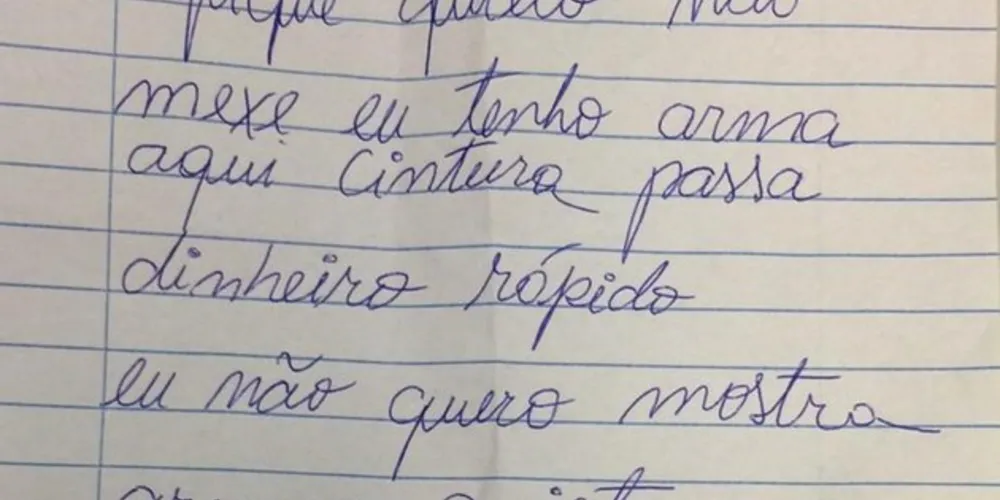 mexe eu tenho arma
aqui cintura passa
dinheiro rápido
eu não quero mostra